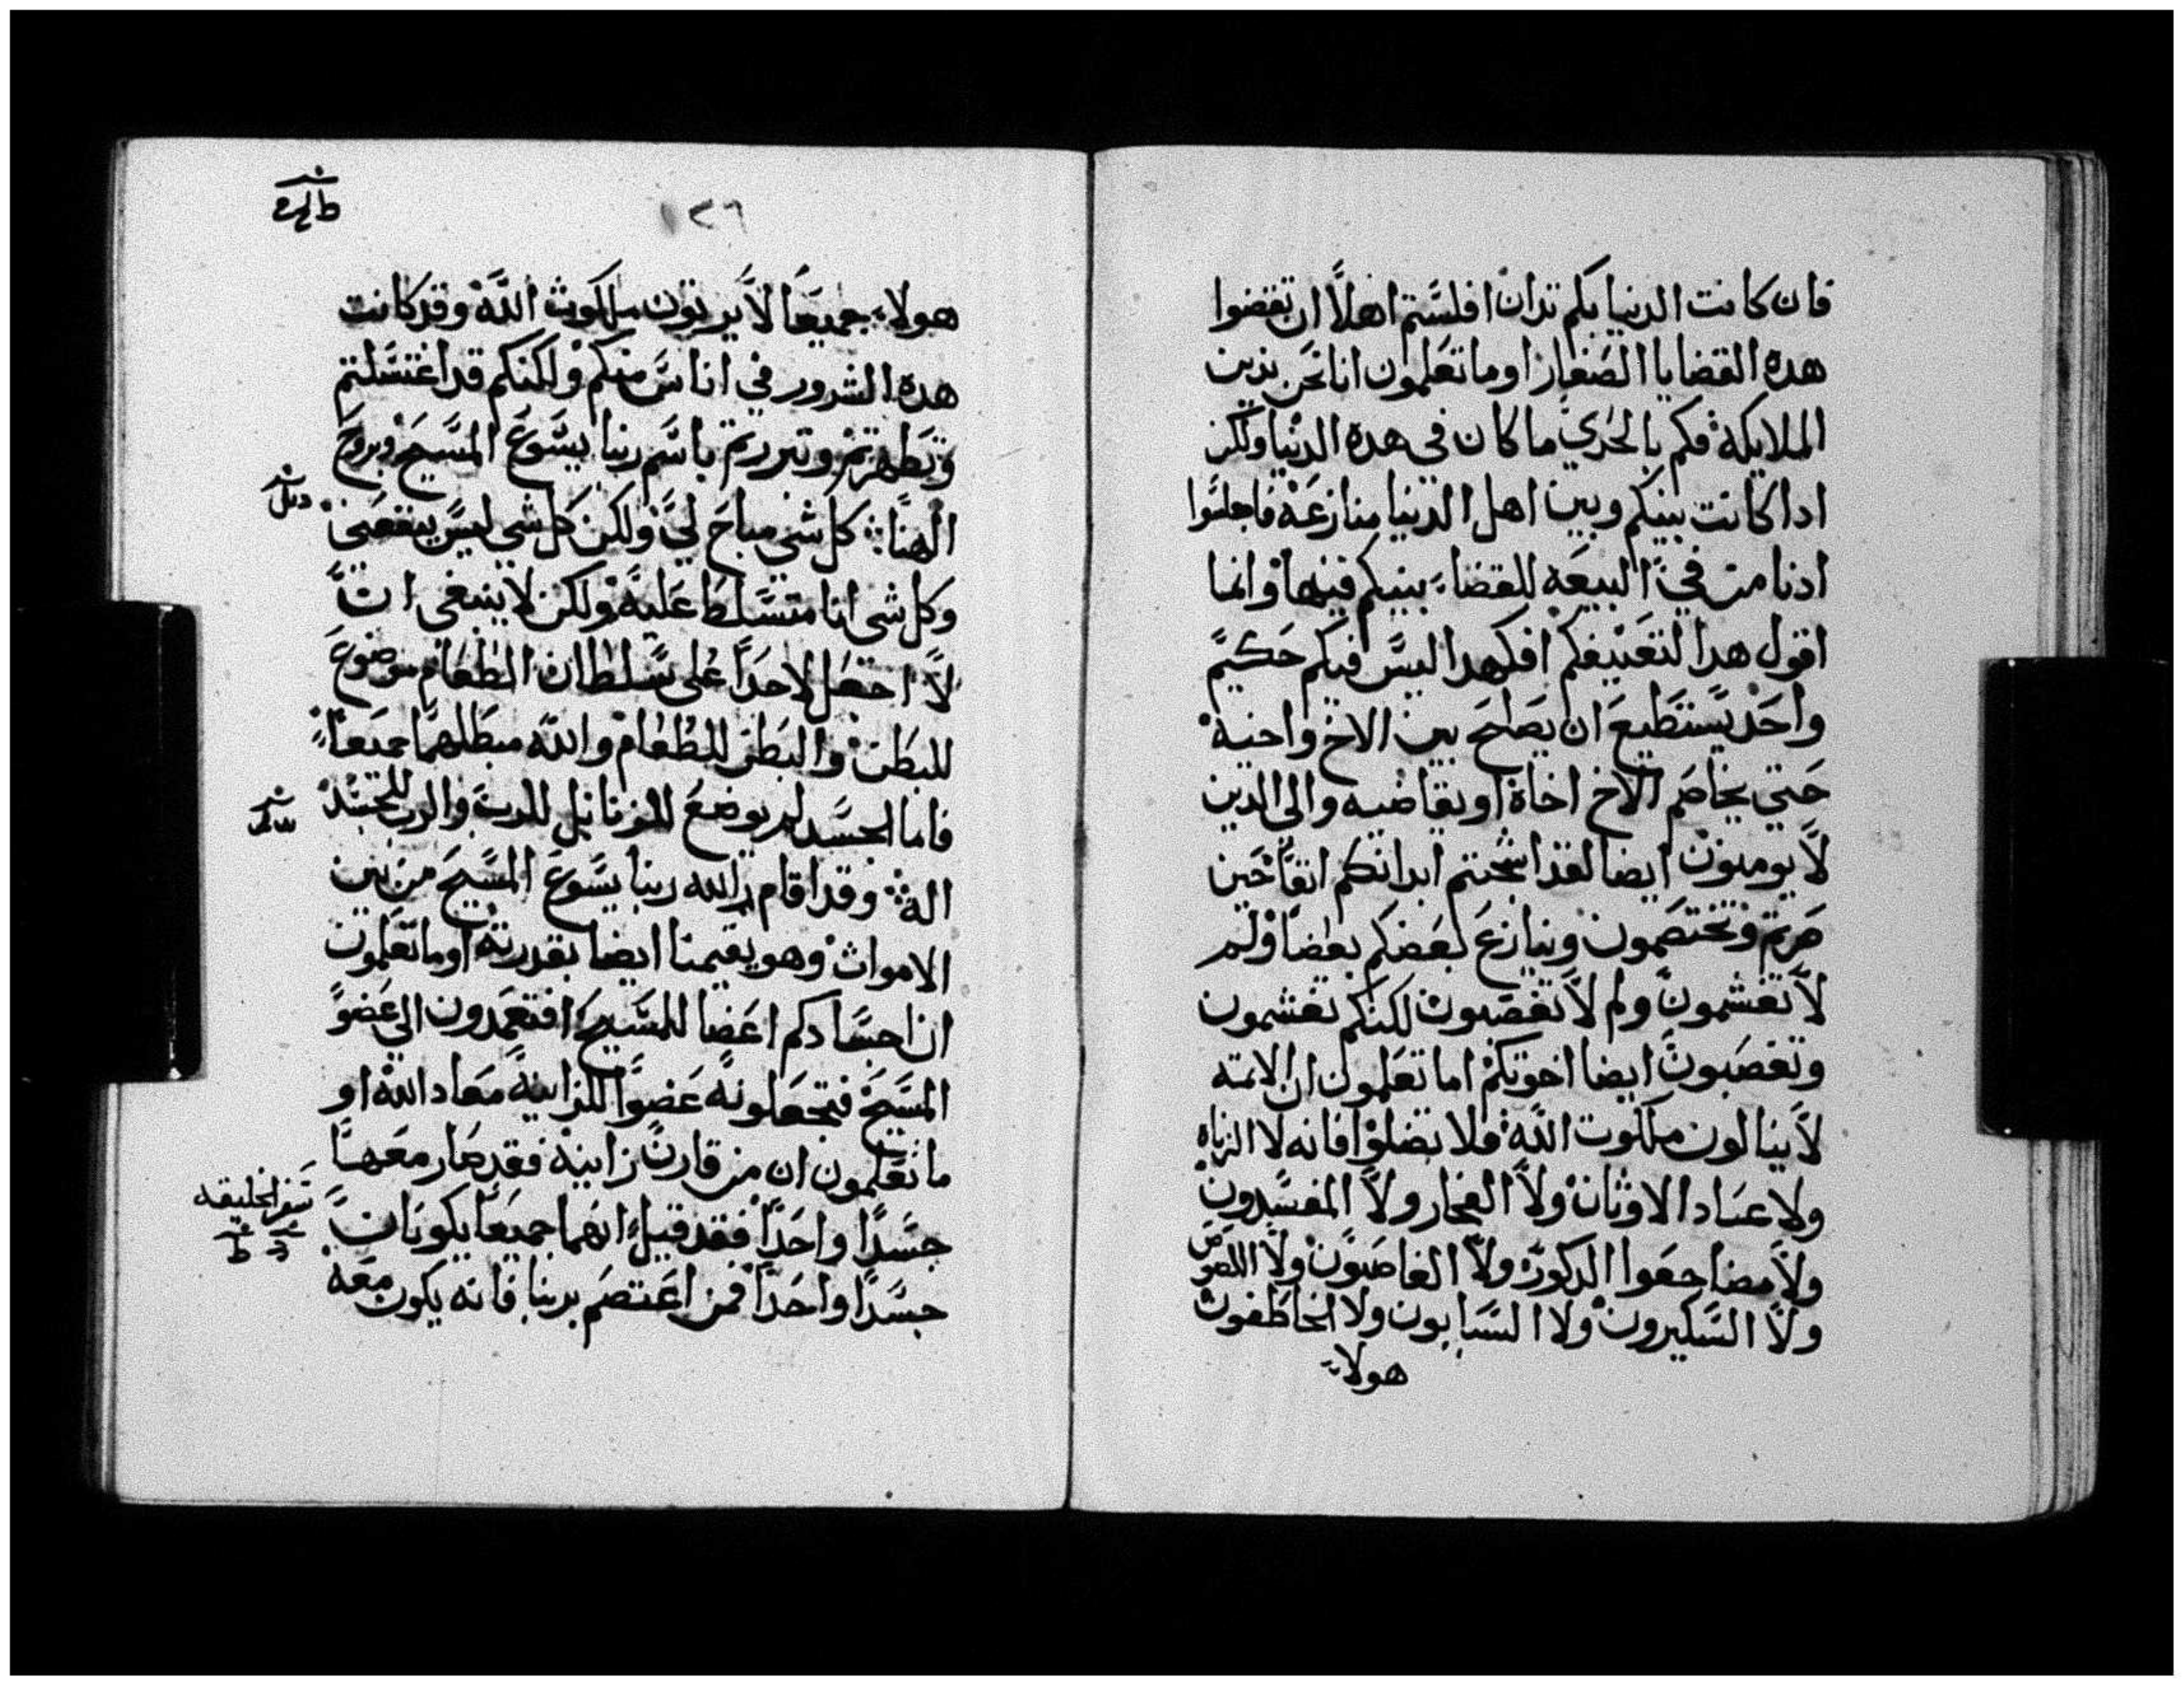 فان كانت الدنيا بكم تدان افلستم اهلا ان تقضوا
هده القضايا الصغار اوما تعلمون انا نحن ندين
الملايكة فكم بالحري ما كان في هده الدنيا ولكن
ادا كانت بينكم وبين اهل الدنيا منازعه فاجلسوا
ادنا من في البيعه للقضاء بينكم فيها وانما
اقول هدا لتعنيفكم افكهدا ليس فيكم حكيم
واحد يستطيع ان يصلح بين الاخ واخيه
حتي يخاصم الاخ اخاة او يقاضيه والي الدين
لا يومنون ايضا لقد ابدانكم
صرتم وتختصمون وينازع بعضكم بعضا ولم
لا تغشمون ولم لا تغصبون لكنكم تغشمون
وتغصبون ايضا اخوتكم اما تعلمون ان الاتمه
لا ينالون ملكوت الله فلا تضلوا فانه لا الزناه
ولا عباد الاوثان ولا الفجار ولا المفسدون
ولا مضاجعوا الدكور ولا الغاصبون ولا اللصوص
ولا السكيرون ولا السبابون ولا الخاطفون
هولاء
١٢٦
هولاء جميعا لا يرتون ملكوت الله وقد كانت
هده الشرور في اناس منكم ولكنكم قد اغتسلتم
وتطهرتم وتبررتم باسم ربنا يسوع المسيح وبروح
الهنا كل شي مباح لي ولكن كل شي ليس ينفعني
وكل شي انا متسلط عليه ولكن لا ينبغي ان
لا اجعل لاحدا علي سلطان الطعام موضوع
للبطن والبطن للطعام والله مبطلهما جميعا
فاما الجسد لم يوضع للزنا بل للرب والرب للجسد
اله وقد اقام الله ربنا يسوع المسيح من بين
الاموات وهو يقيمنا ايضا بقدرته اوما تعلمون
ان اجسادكم اعضا للمسيح افتعمدون الي عضو
المسيح فتجعلونه عضوا للزانية معاد الله او
ما تعلمون ان من قارن زانيه فقد صار معها
جسدا واحدا فقد قيل انهما جميعا يكونان
سفر الخليقه
جسدا واحدا فمن اعتصم بربنا فانه يكون معه